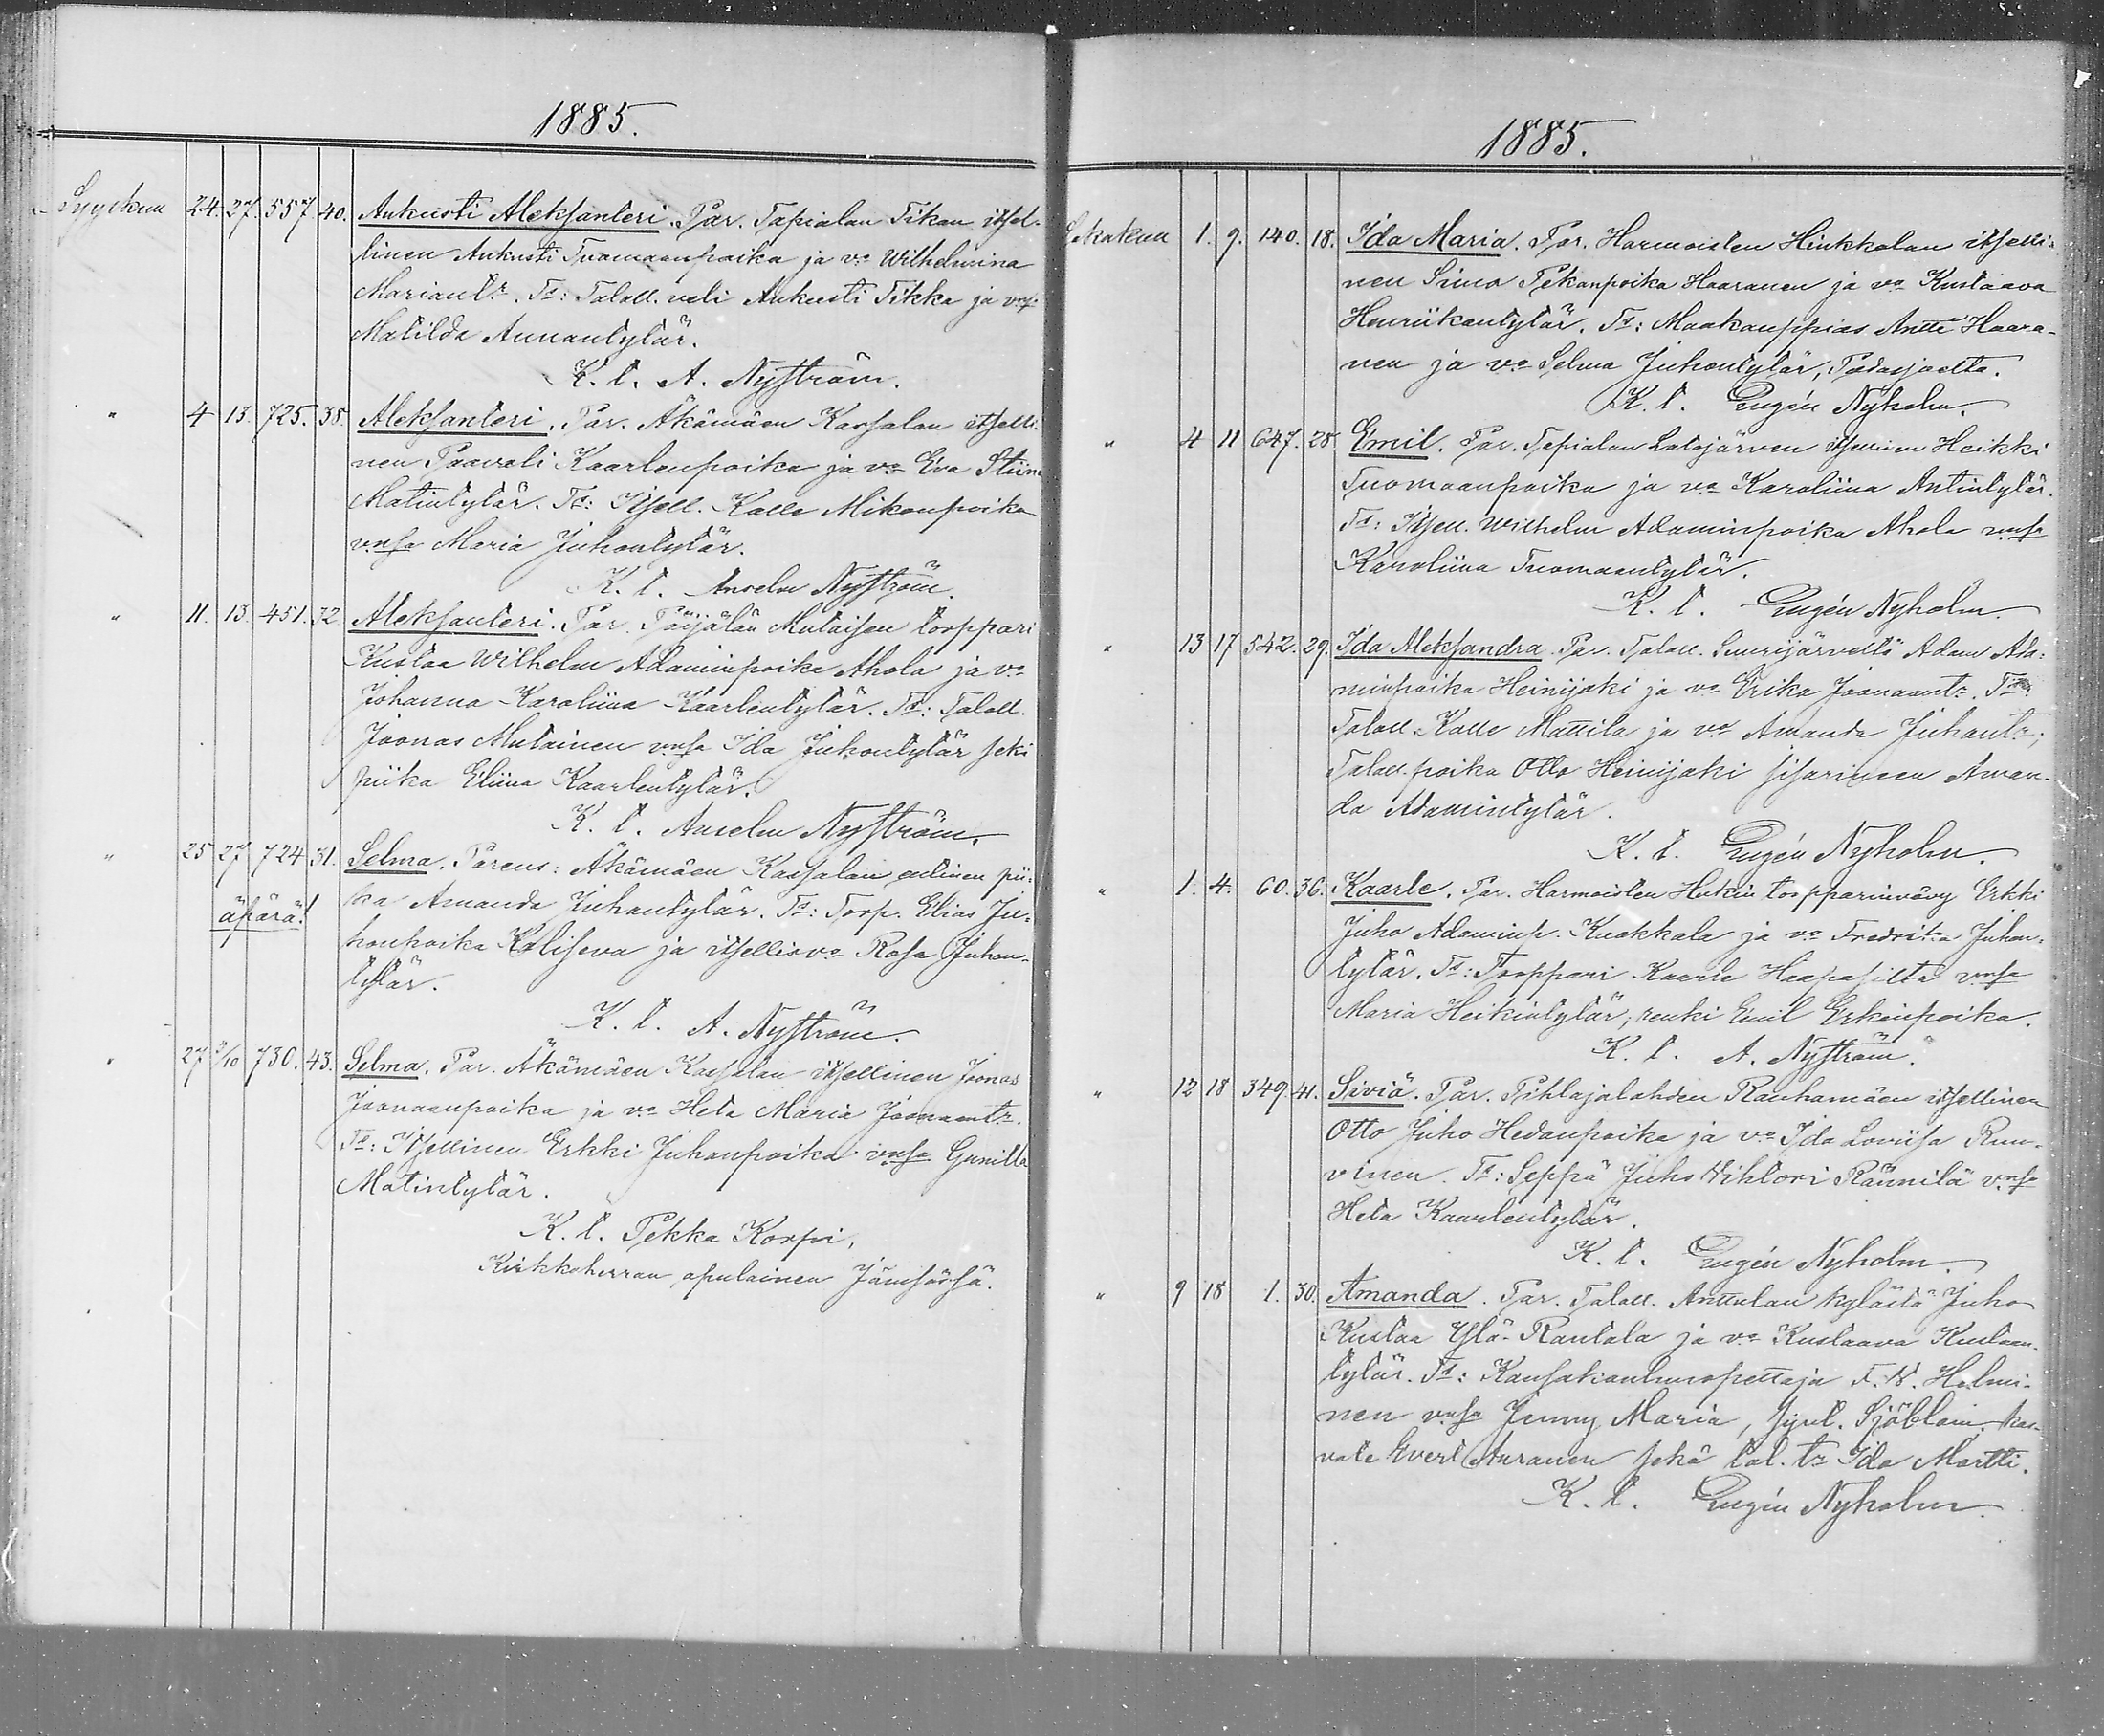 1885.
Syyskuu 24. 27. 557. 40. Aukusti Aleksanteri. Par. Tapialan Tikan itsel-
linen Aukusti Tuomaanpoika ja vo Wilhelmina
Mariantr. Ts: Talall. veli Aukusti Tikka ja vnsa
Matilda Annantytär.
K. t. A. Nyström.
" 4 13. 725. 38. Aleksanteri. Par. Äkämäen Kassalan itselli-
nen Paavali Kaarlenpoika ja vo Eva Stiina
Matintytär. Ts: Itsell. Kalle Mikonpoika
vnsa Maria Juhontytär.
K. t. Anselm Nyström.
" 11. 13. 451. 32 Aleksanteri. Par. Päijälän Mutaisen torppari
Kustaa Wilhelm Adaminpoika Ahola ja vo
Johanna Karoliina Kaarlentytär. Ts: Talall.
Joonas Mutainen vnsa Ida Juhontytär sekä
piika Eliina Kaarlentytär.
K. t. Anselm Nyström.
" 25 27 724 31. Selma. Parens: Äkämäen Kassalan entinen pii-
äpärä! ka Amanda Juhantytär. Ts: Torp. Elias Ju-
honpoika Kaliseva ja itsellisvo Rosa Juhon-
tytär.
K. t. A. Nyström.
" 27 2/10 730. 43. Selma. Par. Äkämäen Kassalan itsellinen Joonas
Joonaanpoika ja vo Heta Maria Joonaantr.
Ts: Itsellinen Erkki Juhanpoika vnsa Gunilla
Matintytär.
K. t. Pekka Korpi,
Kirkkoherran apulainen Jämsässä.
1885.
Lokakuu 1. 9. 140. 18. Ida Maria. Par. Harmoisten Hinkkalan itselli-
nen Simo Pekanpoika Haaranen ja vo Kustaava
Henriikantytär. Ts: Maakauppias Antti Haara-
nen ja vo Selma Juhontytär, Padasjoelta.
K. t. Eugén Nyholm.
" 4 11 647. 28. Emil. Par. Tapialan Latojärven itsellinen Heikki
Tuomaanpoika ja vo Karoliina Antintytär.
Ts: Itsell. Wilhelm Adaminpoika Ahola vnsa
Karoliina Tuomaantytär.
K. t. Eugén Nyholm.
" 13 17 542. 29. Ida Aleksandra. Par. Talall. Suurijärveltä Adam Ada-
minpoika Heinijoki ja vo Erika Joonaantr. Ts:
Talall. Kalle Mattila ja vo Amanda Juhantr;
Talall. poika Otto Heinijoki sisarineen Aman-
da Adamintytär.
K. t. Eugén Nyholm.
" 1. 4. 60. 36. Kaarle. Par. Harmoisten Hukin torpparinvävy Erkki
Juho Adaminp. Kuokkala ja vo Fredrika Juhon-
tytär. Ts: Torppari Kaarle Haapasilta vnsa
Maria Heikintytär, renki Emil Erkinpoika.
K. t. A. Nyström.
" 12 18 349. 41. Siviä. Par. Pihlajalahden Rauhamäen itsellinen
Otto Juho Hedanpoika ja vo Ida Loviisa Ruu-
vinen. Ts: Seppä Juho Wihtori Rännilä vnsa
Heta Kaarlentytär.
K. t. Eugén Nyholm.
" 9 18 1. 30. Amanda. Par. Talall. Anttulan kylästä Juho
Kustaa Ylä-Rantala ja vo Kustaava Kustaan-
tytär. Ts: Kansakoulunopettaja F. W. Helmi-
nen vnsa Jenny Maria, synt. Sjöblom, kas-
vate Evert Auranen sekä tal. tr Ida Martti.
K. t. Eugén Nyholm.